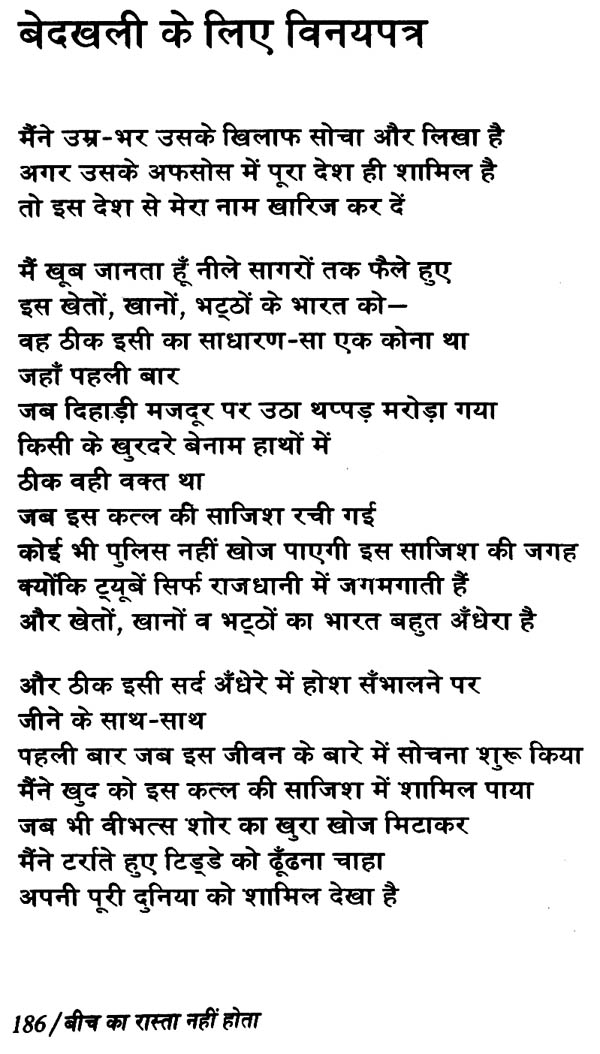 बेदखली के लिए विनयपत्र
मैंने उम्र-भर उसके खिलाफ सोचा और लिखा है
अगर उसके अफसोस में पूरा देश ही शामिल है
तो इस देश से मेरा नाम खारिज कर दें
मैं खूब जानता हूँ नीले सागरों तक फैले हुए
इस खेतों, खानों, भट्ठों के भारत को—
वह ठीक इसी का साधारण-सा एक कोना था
जहाँ पहली बार
जब दिहाड़ी मजदूर पर उठा थप्पड़ मरोड़ा गया
किसी के खुरदरे बेनाम हाथों में
ठीक वही वक्त था
जब इस कत्ल की साजिश रची गई
कोई भी पुलिस नहीं खोज पाएगी इस साजिश की जगह
क्योंकि ट्यूबें सिर्फ राजधानी में जगमगाती हैं
और खेतों, खानों व भट्ठों का भारत बहुत अँधेरा है
और ठीक इसी सर्द अँधेरे में होश सँभालने पर
जीने के साथ-साथ
पहली बार जब इस जीवन के बारे में सोचना शुरू किया
मैंने खुद को इस कत्ल की साजिश में शामिल पाया
जब भी वीभत्स शोर का खुरा खोज मिटाकर
मैंने टर्राते हुए टिड्डे को ढूँढना चाहा
अपनी पूरी दुनिया को शामिल देखा है
186/बीच का रास्ता नहीं होता